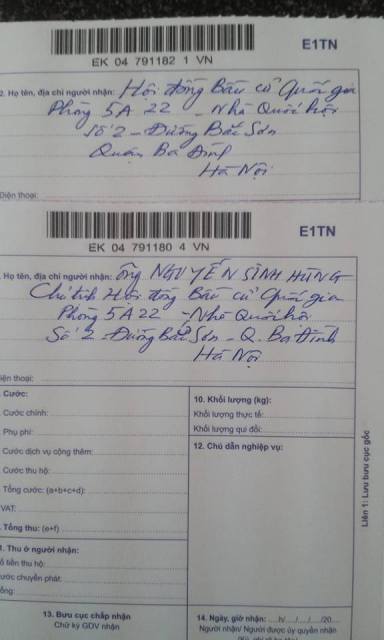 EK 04 791182 1 VN
E1TN
2. Họ tên, địa chỉ người nhận: Hội đồng Bầu cử Quốc gia
Phòng 5A 22 - Nhà Quốc hội
Số 2 - Đường Bắc Sơn
Quận Ba Đình
Hà Nội
Điện thoại:
EK 04 791180 4 VN
E1TN
Họ tên, địa chỉ người nhận: Ông NGUYỄN SINH HÙNG
Chủ tịch Hội đồng Bầu cử Quốc gia
Phòng 5A 22 - Nhà Quốc hội
Số 2 - Đường Bắc Sơn - Q. Ba Đình
Hà Nội
iện thoại:
Cước:
10. Khối lượng (kg):
Cước chính:
Khối lượng thực tế:
Phụ phí:
Khối lượng qui đổi:
Cước dịch vụ cộng thêm:
12. Chú dẫn nghiệp vụ:
Cước thu hộ:
Tổng cước: (a+b+c+d):
VAT:
Tổng thu: (e+f)
1. Thu ở người nhận:
ố tiền thu hộ:
ước chuyển phát:
ổng:
13. Bưu cục chấp nhận
14. Ngày, giờ nhận: ...h/.../.../20...
Chữ ký GDV nhận
Người nhận/ Người được ủy quyền nhận
Liên 1: Lưu bưu cục gốc